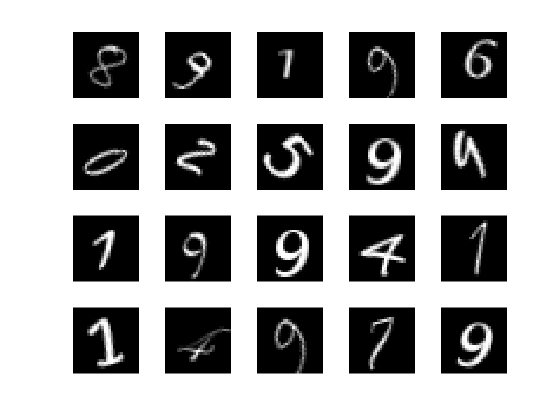 8 9 1 9 6
0 2 5 9 4
1 9 9 4 1
1 4 9 7 9